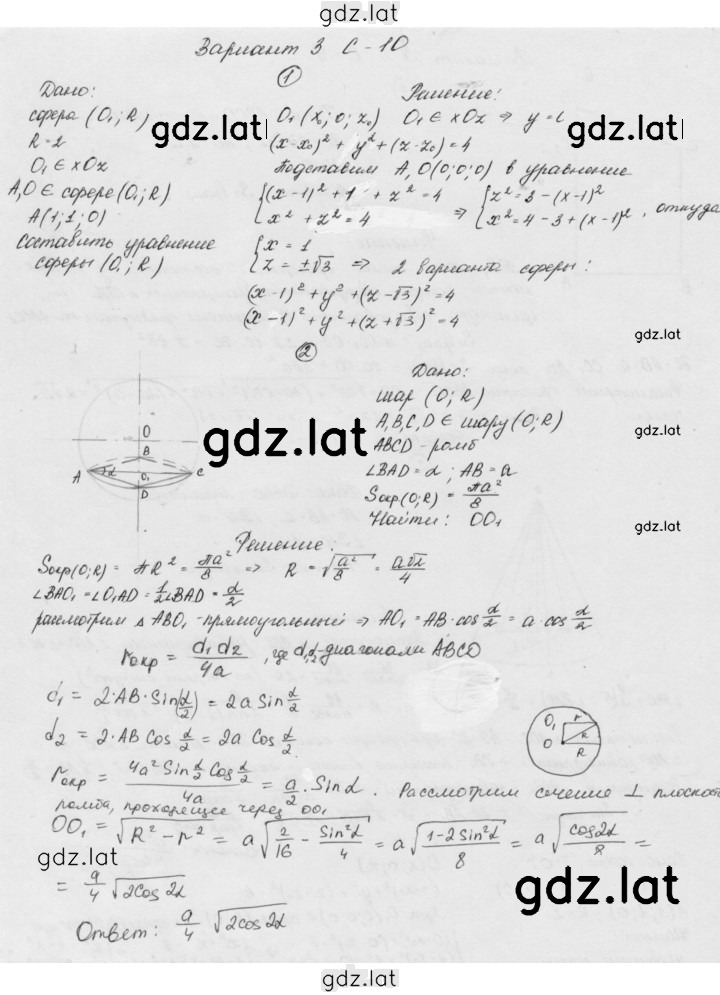 gdz.lat
Вариант 3 С-10
1
Дано:
сфера (O₁; R)
R = 2
O₁ ∈ xOz
A, O ∈ сфере (O₁; R)
A(1; 1; 0)
Составить уравнение
сферы (O₁; R)
Решение:
O₁(x₀; 0; z₀) O₁ ∈ xOz ⇒ y =
(x-x₀)² + y² + (z-z₀) = 4
Подставим A, O(0;0;0) в уравнение
{(x-1)² + 1 + z² = 4
{x² + z² = 4
⇒ {z² = 3 - (x-1)²
{x² = 4 - 3 + (x-1)², откуда
{x = 1
{z = ±√3 ⇒ 2 варианта сферы:
(x-1)² + y² + (z-√3)² = 4
(x-1)² + y² + (z+√3)² = 4
gdz.lat
gdz.lat
gdz.lat
gdz.lat
gdz.lat
2
O
B
A α O₁ C
D
gdz.lat
Дано:
шар (O; R)
A, B, C, D ∈ шару (O; R)
ABCD - ромб
∠BAD = α; AB = a
Sокр(O;R) = πa²/8
Найти: OO₁
gdz.lat
gdz.lat
Решение:
Sокр(O;R) = πR² = πa²/8 ⇒ R = √(a²/8) = a√2/4
∠BAO₁ = ∠O₁AD = 1/2∠BAD = α/2
рассмотрим △ABO₁ - прямоугольный ⇒ AO₁ = AB·cos α/2 = a·cos α/2
rокр = d₁d₂/4a, где d₁,d₂-диагонали ABCD
d₁ = 2·AB·Sin(α/2) = 2a Sin α/2
d₂ = 2·AB Cos α/2 = 2a Cos α/2
O₁ r
O R
R
rокр = 4a² Sin α/2 Cos α/2 / 4a = a/2 · Sin α. Рассмотрим сечение ⊥ плоскост
ромба, проходящее через OO₁
OO₁ = √(R² - r²) = a√(2/16 - Sin²α/4) = a√((1-2Sin²α)/8) = a√(cos2α/8) =
gdz.lat
= a/4 √(2cos2α)
Ответ: a/4 √(2cos2α)
gdz.lat
gdz.lat
gdz.lat